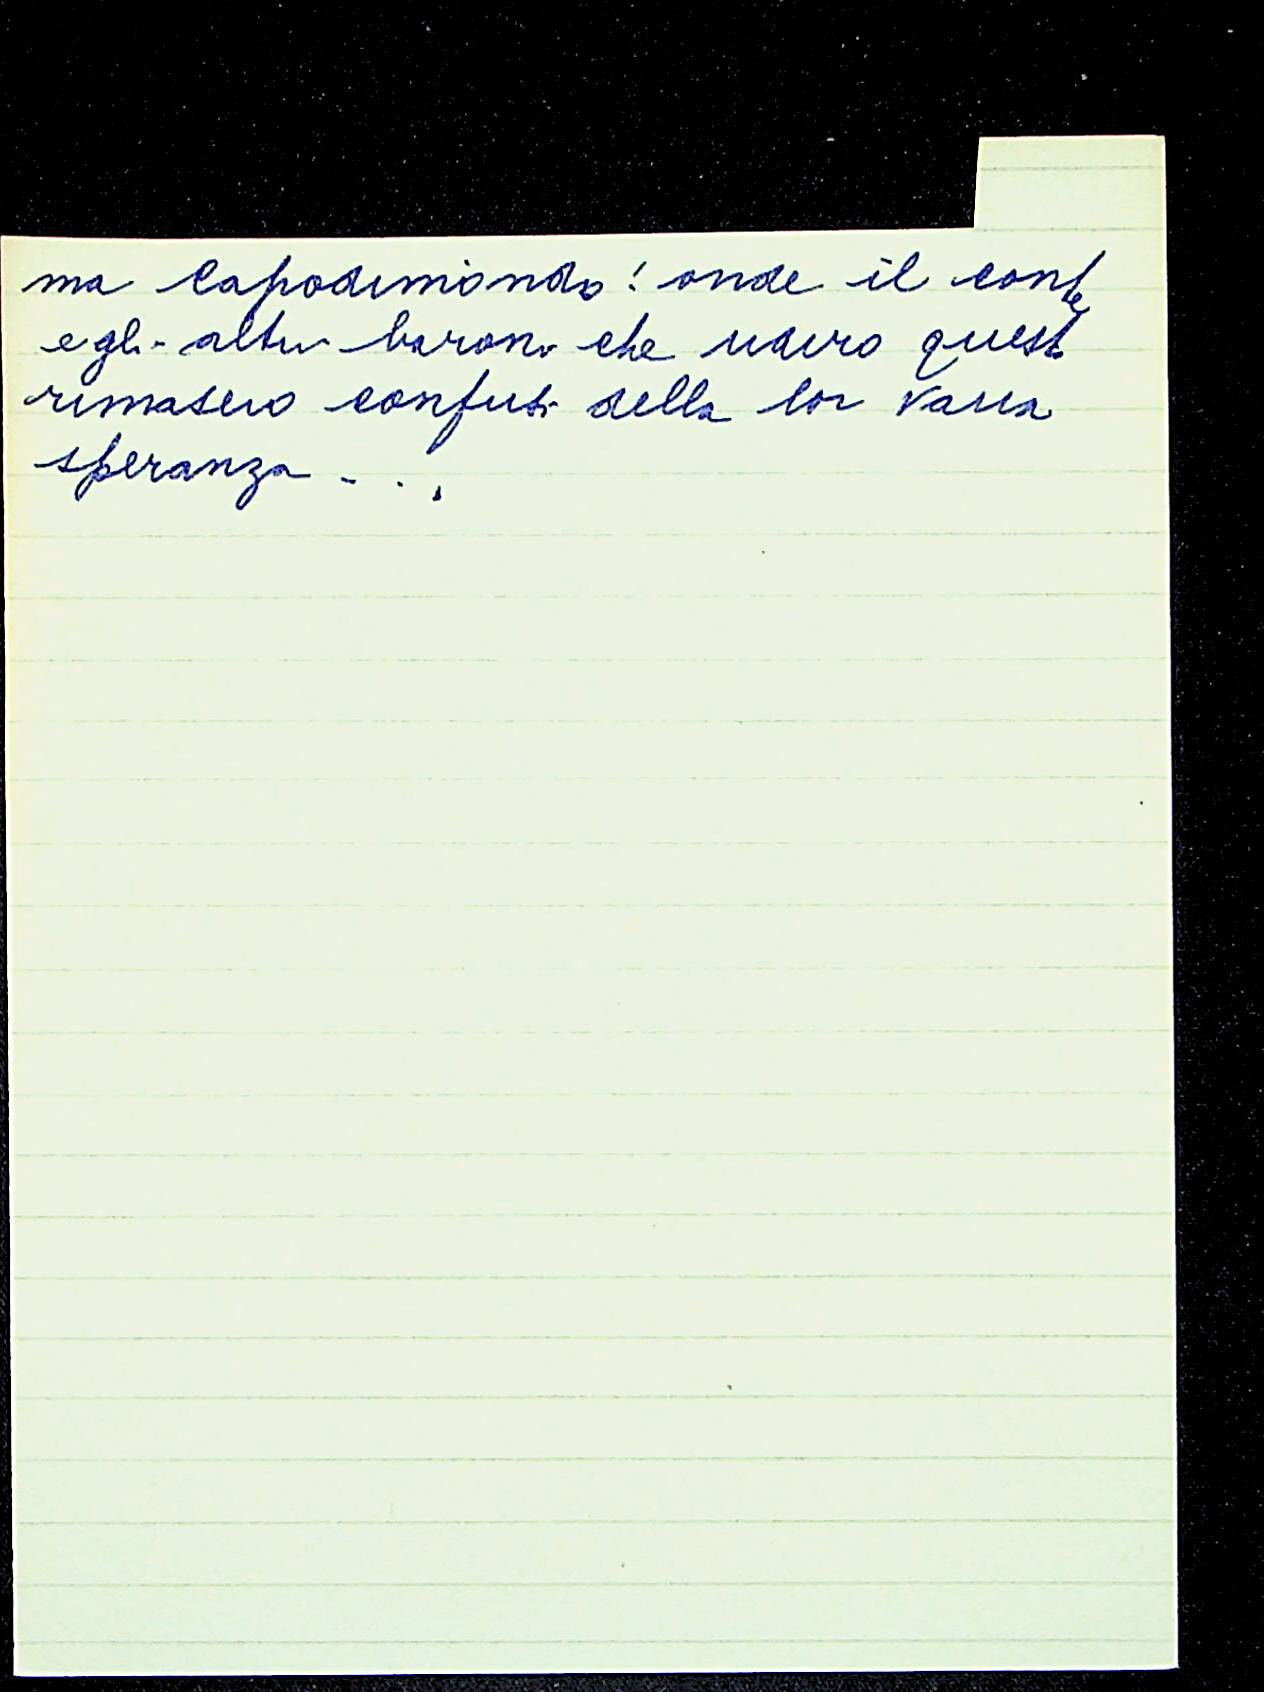 ma Capodimondo! onde il conte
e gli altri baroni che udiro questo
rimasero confusi della lor vana
speranza...